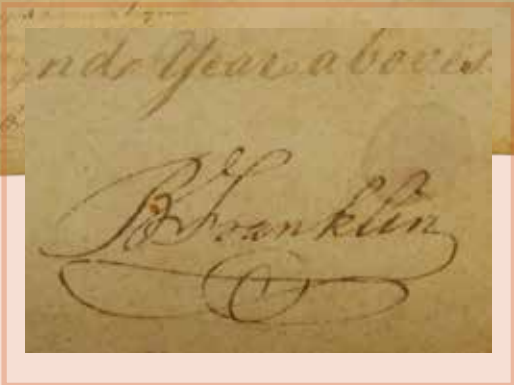 nd Year above s
B Franklin